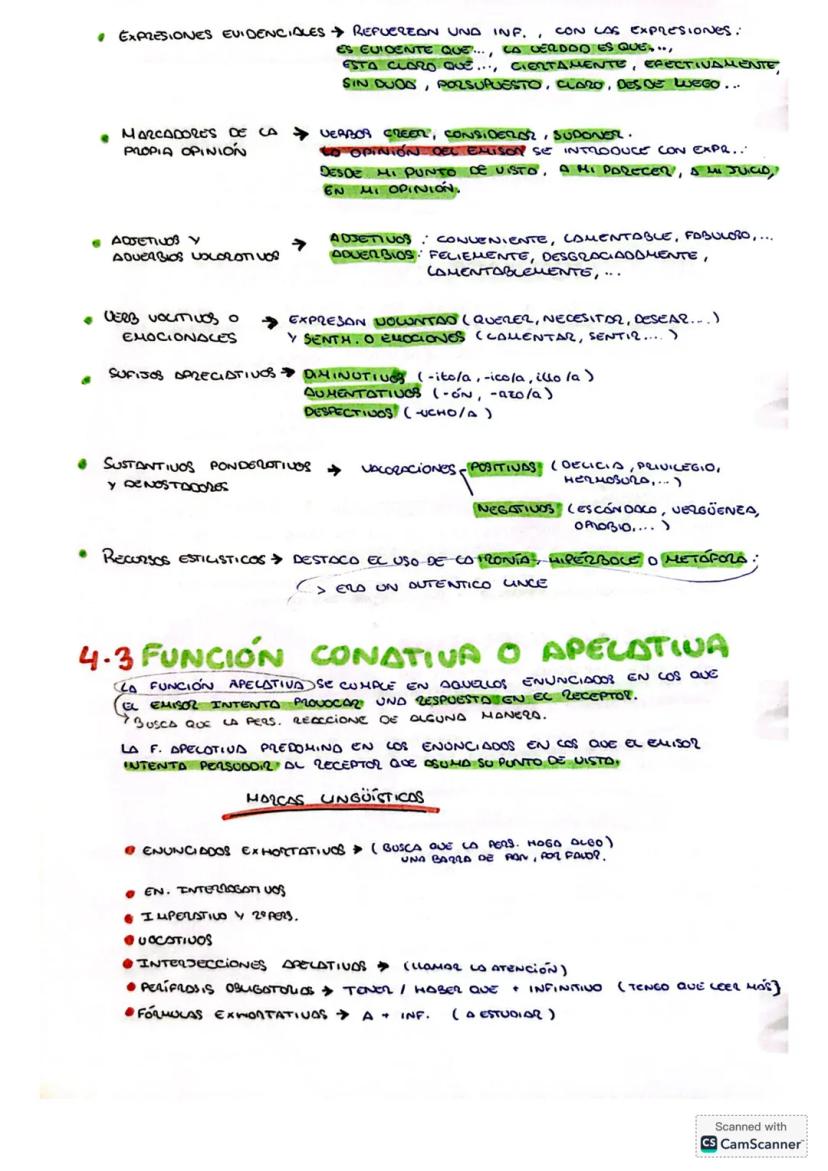 • EXPRESIONES EVIDENCIALES → REFUERZAN UNA INF., CON LAS EXPRESIONES:
ES EVIDENTE QUE..., LA VERDAD ES QUE...,
ESTA CLARO QUE..., CIERTAMENTE, EFECTIVAMENTE,
SIN DUDA, PORSUPUESTO, CLARO, DESDE LUEGO...
• MARCADORES DE LA → VERBOS CREER, CONSIDERAR, SUPONER.
PROPIA OPINIÓN LA OPINIÓN DEL EMISOR SE INTRODUCE CON EXPR.:
DESDE MI PUNTO DE VISTA, A MI PARECER, A MI JUICIO,
EN MI OPINIÓN.
• ADJETIVOS Y → ADJETIVOS: CONVENIENTE, LAMENTABLE, FABULOSO,...
ADVERBIOS VALORATIVOS ADVERBIOS: FELIZMENTE, DESGRACIADAMENTE,
LAMENTABLEMENTE,...
• VERB VOLITIVOS O → EXPRESAN VOLUNTAD (QUERER, NECESITAR, DESEAR...)
EMOCIONALES Y SENTM. O EMOCIONES (LAMENTAR, SENTIR...)
• SUFIJOS APRECIATIVOS → DIMINUTIVOS (-ito/a, -ico/a, illo/a)
AUMENTATIVOS (-ÓN, -AZO/a)
DESPECTIVOS (-UCHO/A)
• SUSTANTIVOS PONDERATIVOS → VALORACIONES POSITIVAS (DELICIA, PRIVILEGIO,
Y DENOSTADORES HERMOSURA,...)
NEGATIVAS (ESCÁNDALO, VERGÜENZA,
OPROBIO,...)
• RECURSOS ESTILISTICOS → DESTACA EL USO DE LA IRONÍA, HIPÉRBOLE O METÁFORA:
→ ERA UN AUTENTICO LINCE
4.3 FUNCIÓN CONATIVA O APELATIVA
LA FUNCIÓN APELATIVA SE CUMPLE EN AQUELLOS ENUNCIADOS EN LOS QUE
EL EMISOR INTENTA PROVOCAR UNA RESPUESTA EN EL RECEPTOR.
→ BUSCA QUE LA PERS. REACCIONE DE ALGUNA MANERA.
LA F. APELATIVA PREDOMINA EN LOS ENUNCIADOS EN LOS QUE EL EMISOR
INTENTA PERSUADIR AL RECEPTOR QUE ASUMA SU PUNTO DE VISTA.
MARCAS LINGÜÍSTICAS
• ENUNCIADOS EXHORTATIVOS → (BUSCA QUE LA PERS. HAGA ALGO)
UNA BARRA DE PAN, POR FAVOR.
• EN. INTERROGATIVOS
• IMPERATIVO Y 2ª PERS.
• VOCATIVOS
• INTERJECCIONES APELATIVAS → (LLAMAR LA ATENCIÓN)
• PERÍFRASIS OBLIGATORIAS → TENER / HABER QUE + INFINITIVO (TENGO QUE LEER MÁS)
• FÓRMULAS EXHORTATIVAS → A + INF. (A ESTUDIAR)
Scanned with
CS CamScanner